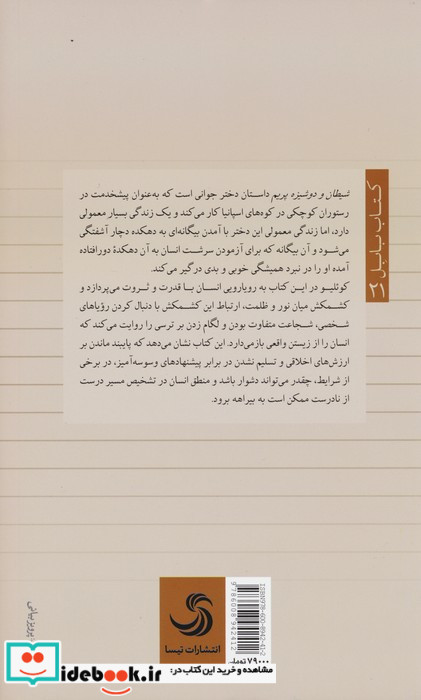 شیطان و دوشیزه پریم داستان دختر جوانی است که به‌عنوان پیشخدمت در
رستوران کوچکی در کوه‌های اسپانیا کار می‌کند و یک زندگی بسیار معمولی
دارد، اما زندگی معمولی این دختر با آمدن بیگانه‌ای به دهکده دچار آشفتگی
می‌شود و آن بیگانه که برای آزمودن سرشت انسان به آن دهکدهٔ دورافتاده
آمده او را در نبرد همیشگی خوبی و بدی درگیر می‌کند.
کوئلیو در این کتاب به رویارویی انسان با قدرت و ثروت می‌پردازد و
کشمکش میان نور و ظلمت، ارتباط این کشمکش با دنبال کردن رؤیاهای
شخصی، شجاعت متفاوت بودن و لگام زدن بر ترسی را روایت می‌کند که
انسان را از زیستن واقعی بازمی‌دارد. این کتاب نشان می‌دهد که پایبند ماندن بر
ارزش‌های اخلاقی و تسلیم نشدن در برابر پیشنهادهای وسوسه‌آمیز، در برخی
از شرایط، چقدر می‌تواند دشوار باشد و منطق انسان در تشخیص مسیر درست
از نادرست ممکن است به بیراهه برود.
کتاب بابل
انتشارات تیسا
ISBN978-600-8942-41-2
9786008942412
۷۹۰۰۰ تومان
پرویز بیانی
idebook.ir
مشاهده و خرید این کتاب در: